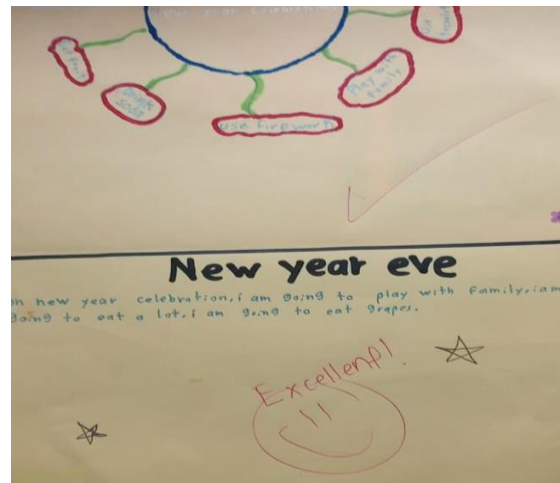 New year celebration
Drink soda
use firework
Play with family
use
New year eve
on new year celebration, i am going to play with family, i am
going to eat a lot, i am going to eat grapes.
Excellent!